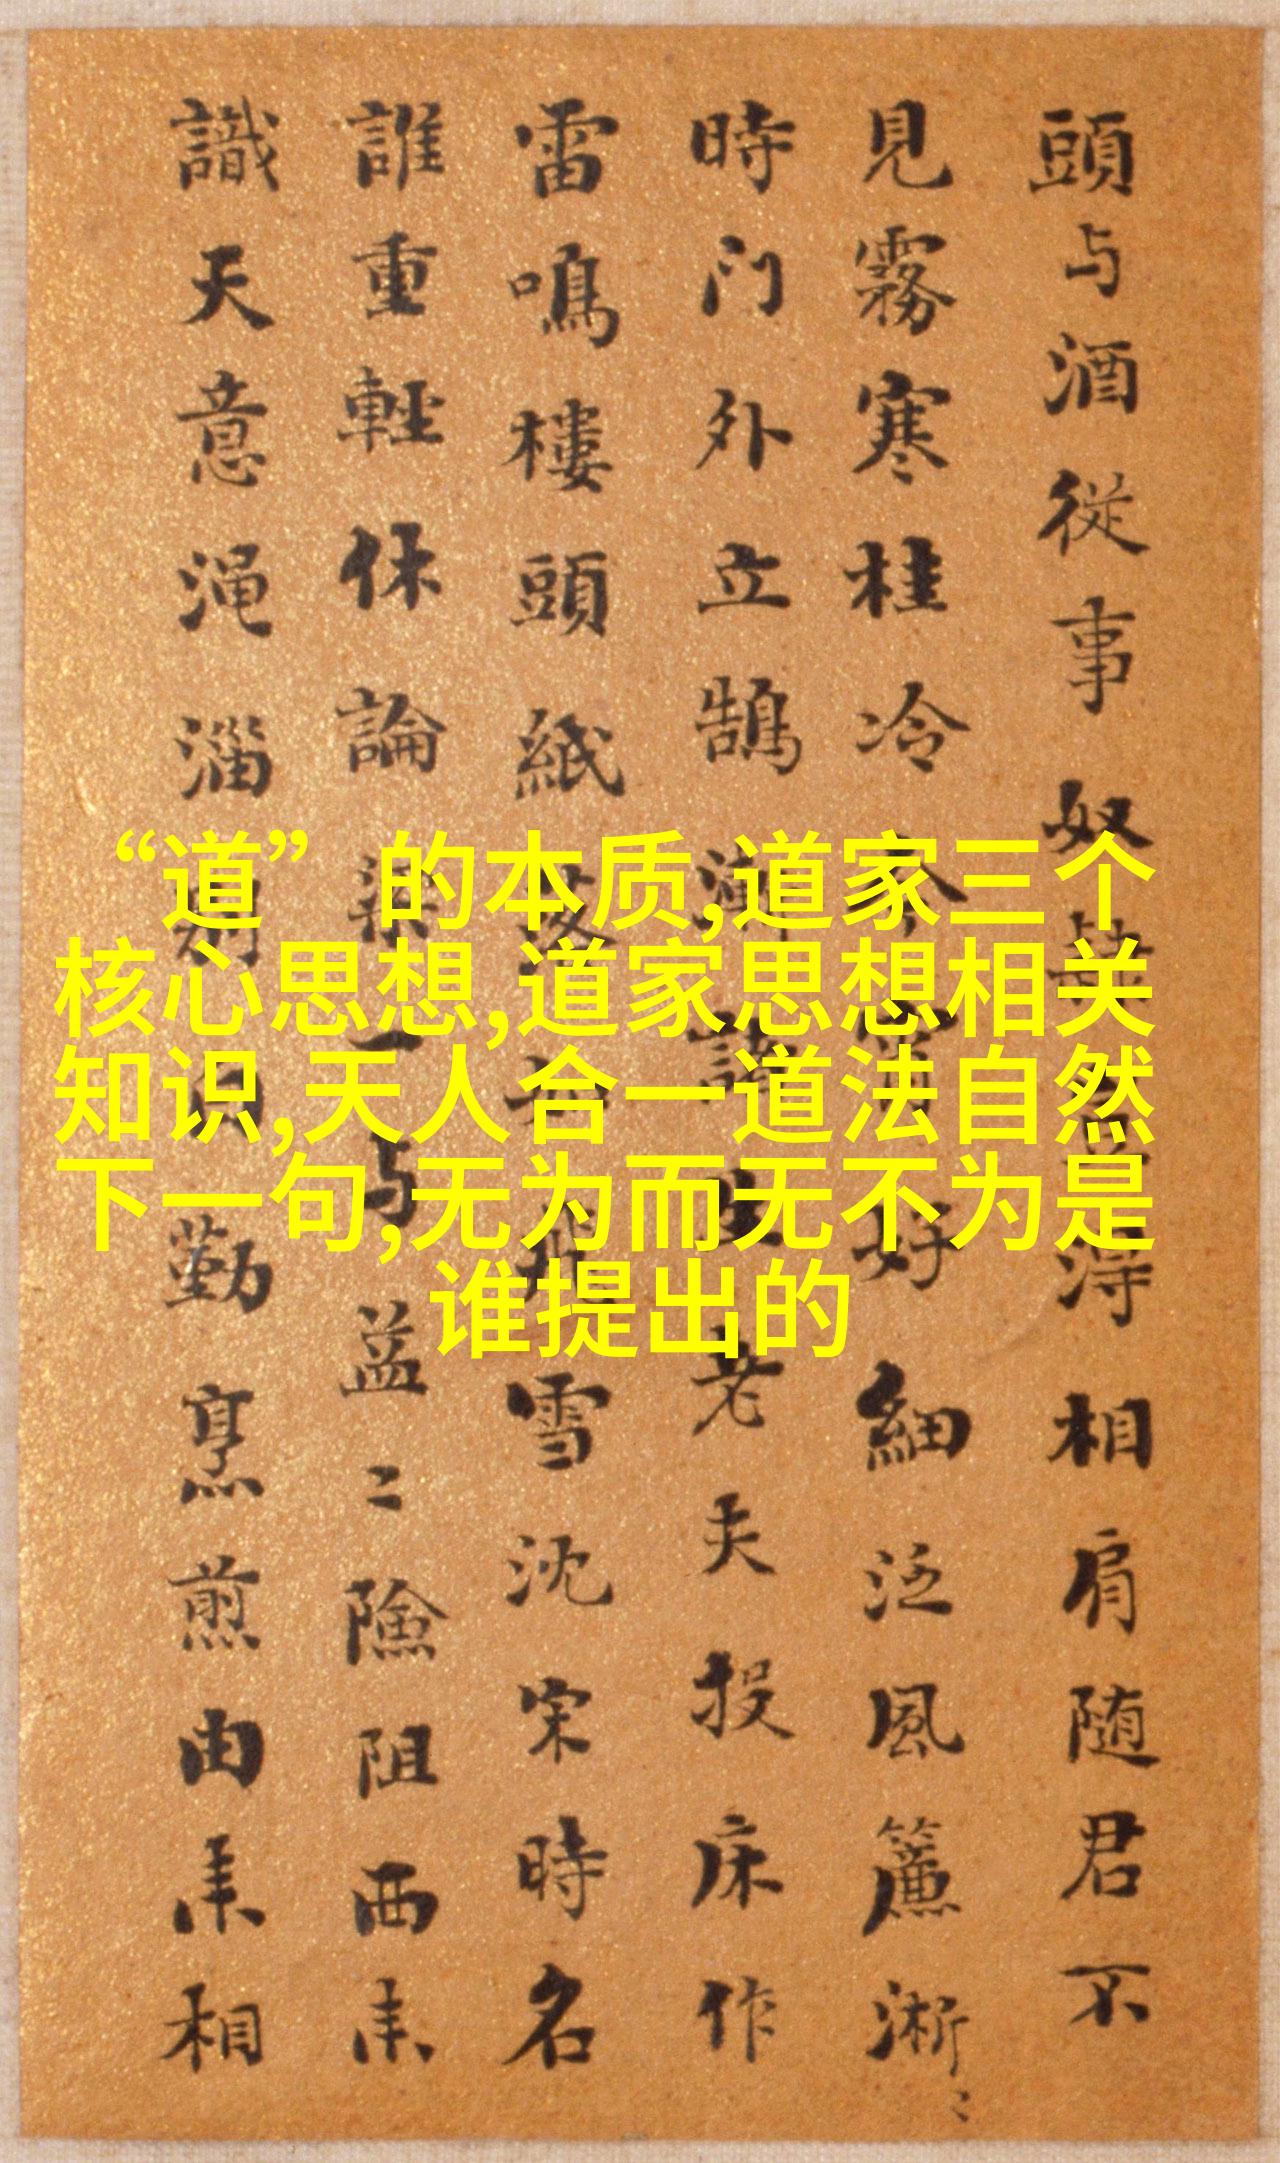 頭与酒從事奴得相肩随君不
見霧寒桂冷好細泛風簾淅〻
時门外立鵠生老夫投床作
雷鳴樓頭紙雪沈宋時名
誰重輕休論一与益〻險阻西来
識天意渑淄勤烹煎由来相
“道” 的本质,道家三个
核心思想,道家思想相关
知识,天人合一道法自然
下一句,无为而无不为是
谁提出的